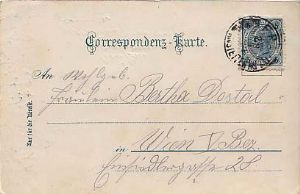 Correspondenz-Karte.
An Wohlgeb.
Fräulein Bertha Dostal
in Wien V. Bez.
Einsiedlergasse 28
Nur für die Adresse.